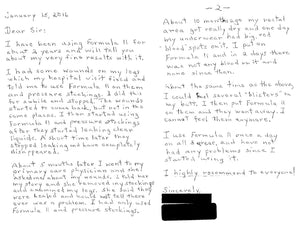 January 10, 2016
Dear Sir:
I have been using Formula 11 for
about 2 years and will tell you
about my very fine results with it.
I had some wounds on my legs
which my hospital visit fixed and
told me to use Formula 11 on them
and pressure stockings. I did this
for awhile and stopped. The wounds
started to come back, but not in the
same places. I then started using
Formula 11 and pressure stockings
after they started leaking clear
liquids. A short time later they
stopped leaking and have completely
disappeared.
About 5 months later I went to my
primary care physician and she
asked about my wounds. I told her
my story and she removed my stockings
and examined my legs. She said they
were healed and could not tell there
ever was a problem. I had only used
Formula 11 and pressure stockings.
- 2 -
About 10 months ago my rectal
area got really dry and one day
my underwear had big red
blood spots on it. I put on
Formula 11 and in 2 days there
was not any blood on it and
none since then.
About the same time as the above,
I could feel several "blisters" in
my butt. I then put Formula 11
on them and they went away. I
cannot feel them anymore.
I use Formula 11 once a day
on all areas, and have not
had any problems since I
started using it.
I highly recommend to everyone!
Sincerely,